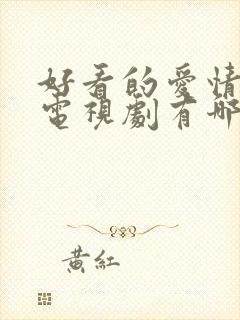 好看的愛情
電視劇有哪
黃紅